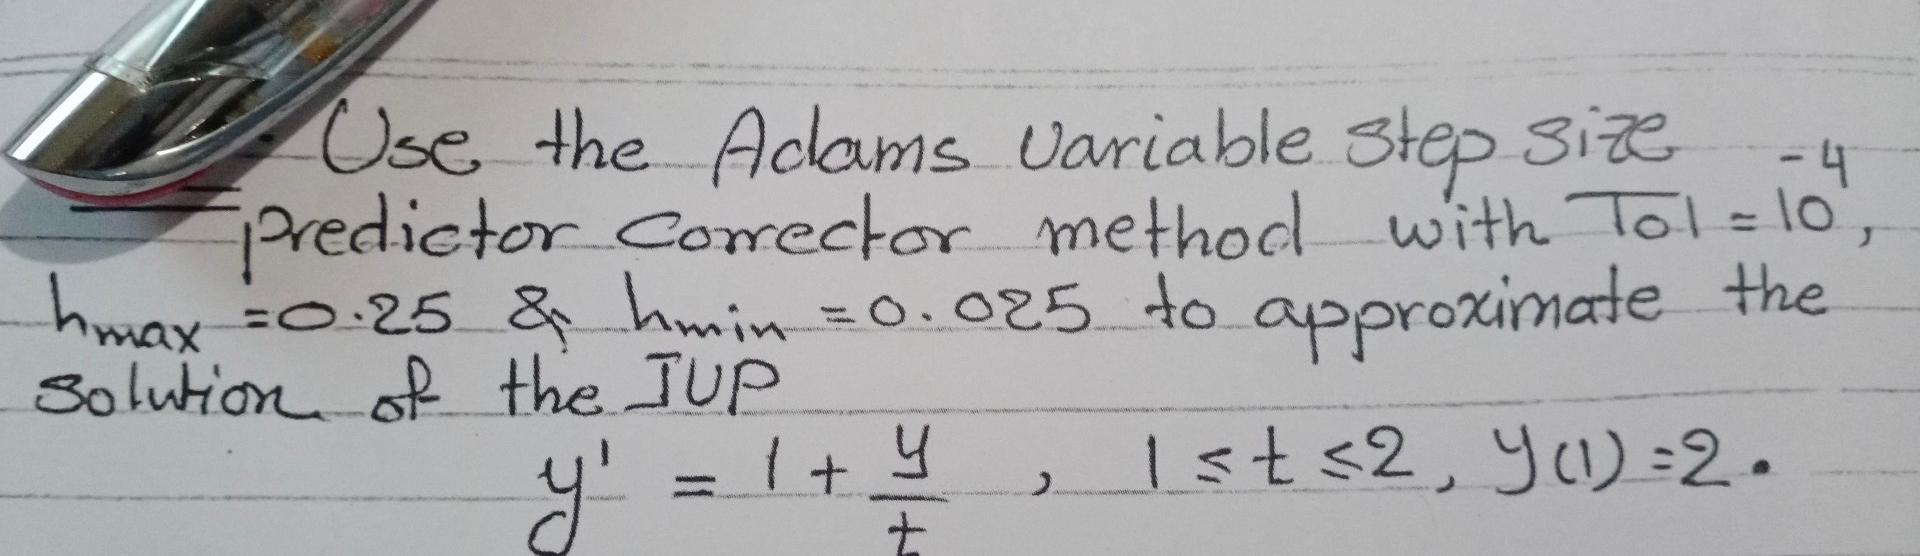 Use the Adams Variable step size
predictor corrector method with Tol = 10^-4,
hmax = 0.25 & hmin = 0.025 to approximate the
solution of the IVP
y' = 1 + y/t , 1 ≤ t ≤ 2, y(1) = 2.